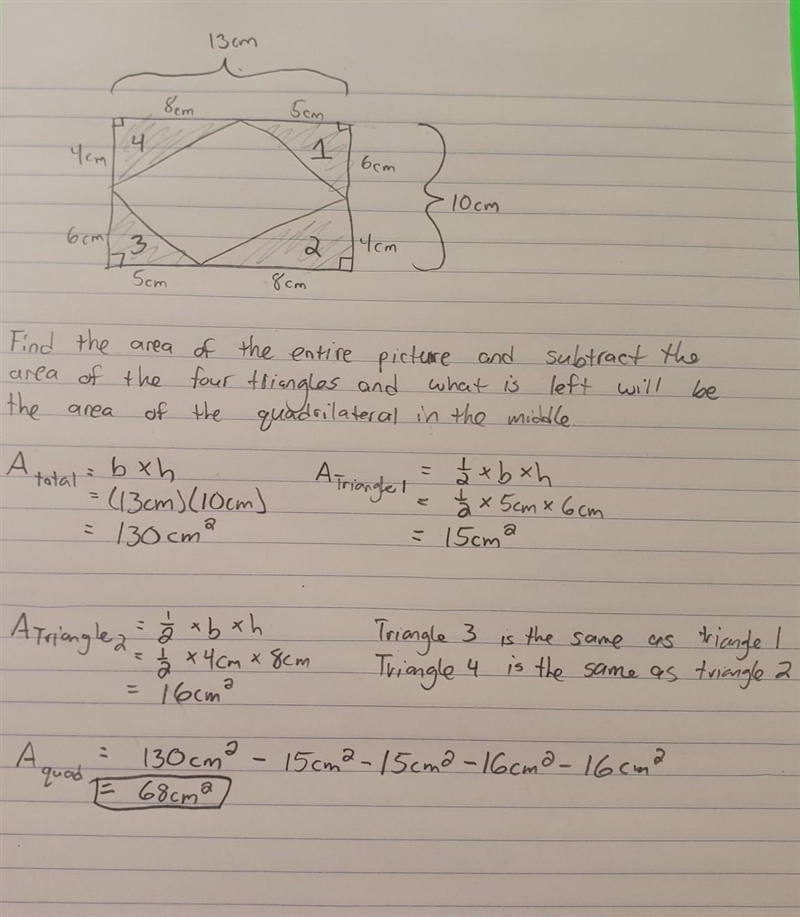 13cm
8cm 5cm
4cm 4 1 6cm
10cm
6cm 3 2 4cm
5cm 8cm
Find the area of the entire picture and subtract the
area of the four triangles and what is left will be
the area of the quadrilateral in the middle.
A total = b × h
= (13cm)(10cm)
= 130cm²
A Triangle 1 = 1/2 × b × h
= 1/2 × 5cm × 6cm
= 15cm²
A Triangle 2 = 1/2 × b × h
= 1/2 × 4cm × 8cm
= 16cm²
Triangle 3 is the same as triangle 1
Triangle 4 is the same as triangle 2
A quad = 130cm² - 15cm² - 15cm² - 16cm² - 16cm²
= 68cm²